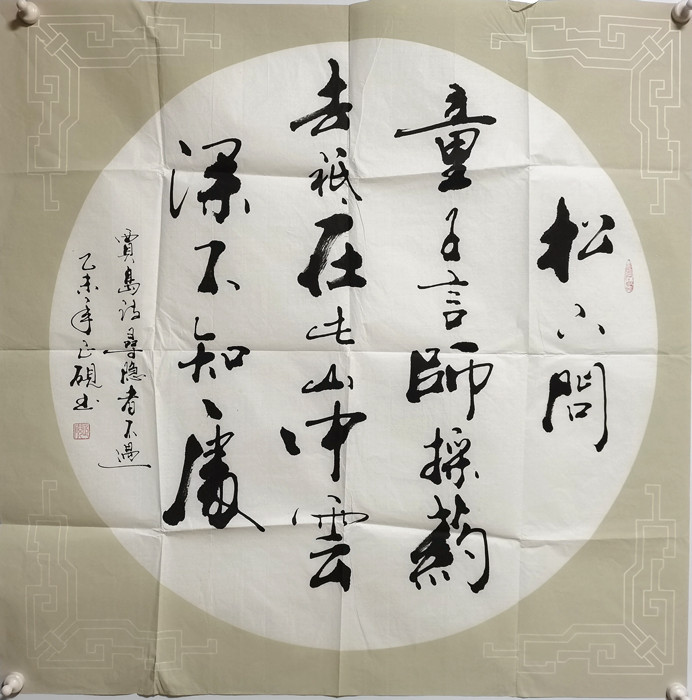 松下問
童子言師採葯
去祇在此山中雲
深不知處
賈島詩尋隐者不遇
乙未年 書